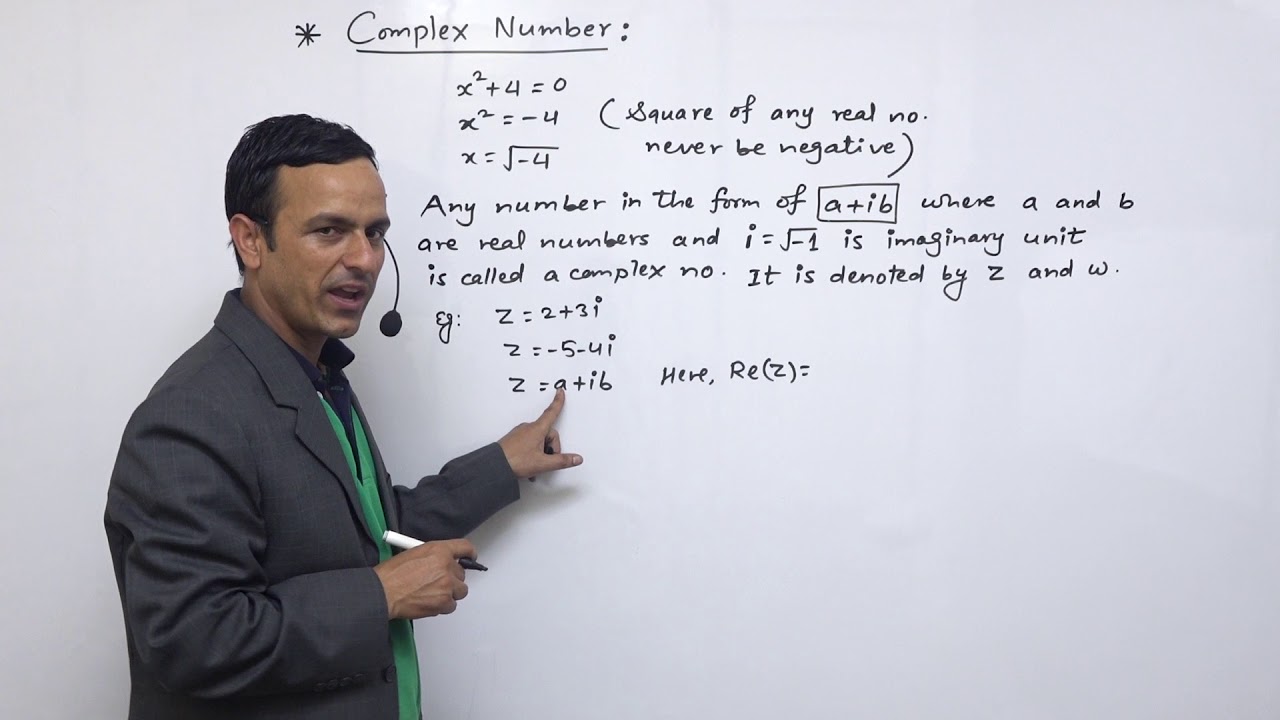 * Complex Number:
x²+4=0
x²=-4 (Square of any real no.
x=√-4 never be negative)
Any number in the form of a+ib where a and b
are real numbers and i=√-1 is imaginary unit
is called a complex no. It is denoted by Z and w.
Eg: Z=2+3i
Z=-5-4i
Z=a+ib Here, Re(Z)=